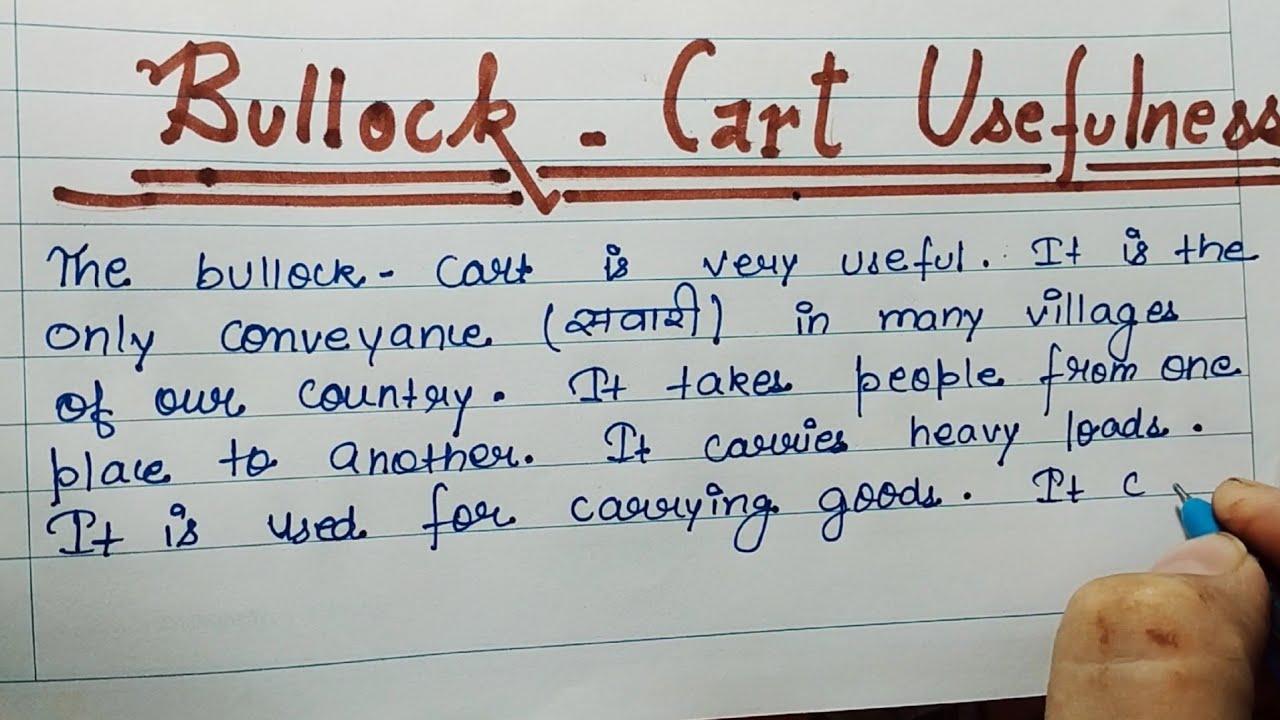 Bullock - Cart Usefulness
The bullock - cart is very useful. It is the
only conveyance (सवारी) in many villages
of our country. It takes people from one
place to another. It carries heavy loads.
It is used for carrying goods. It c